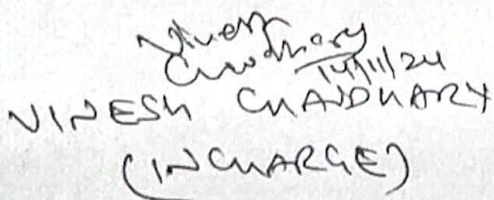 Vinesh
Chaudhary
14/11/24
VINESH CHAUDHARY
(INCHARGE)